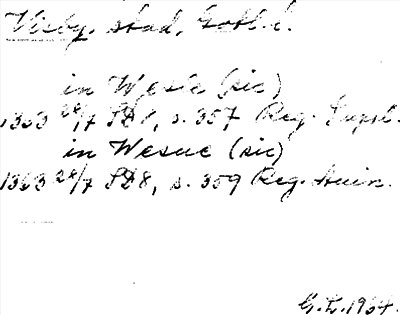 Visby, stad, Gotl. l.
in Wesie (sic)
1363 28/7 SD8, s. 357 Reg. Suppl.
in Wesue (sic)
1363 28/7 SD8, s. 359 Reg. Avin.
G.L. 1964.